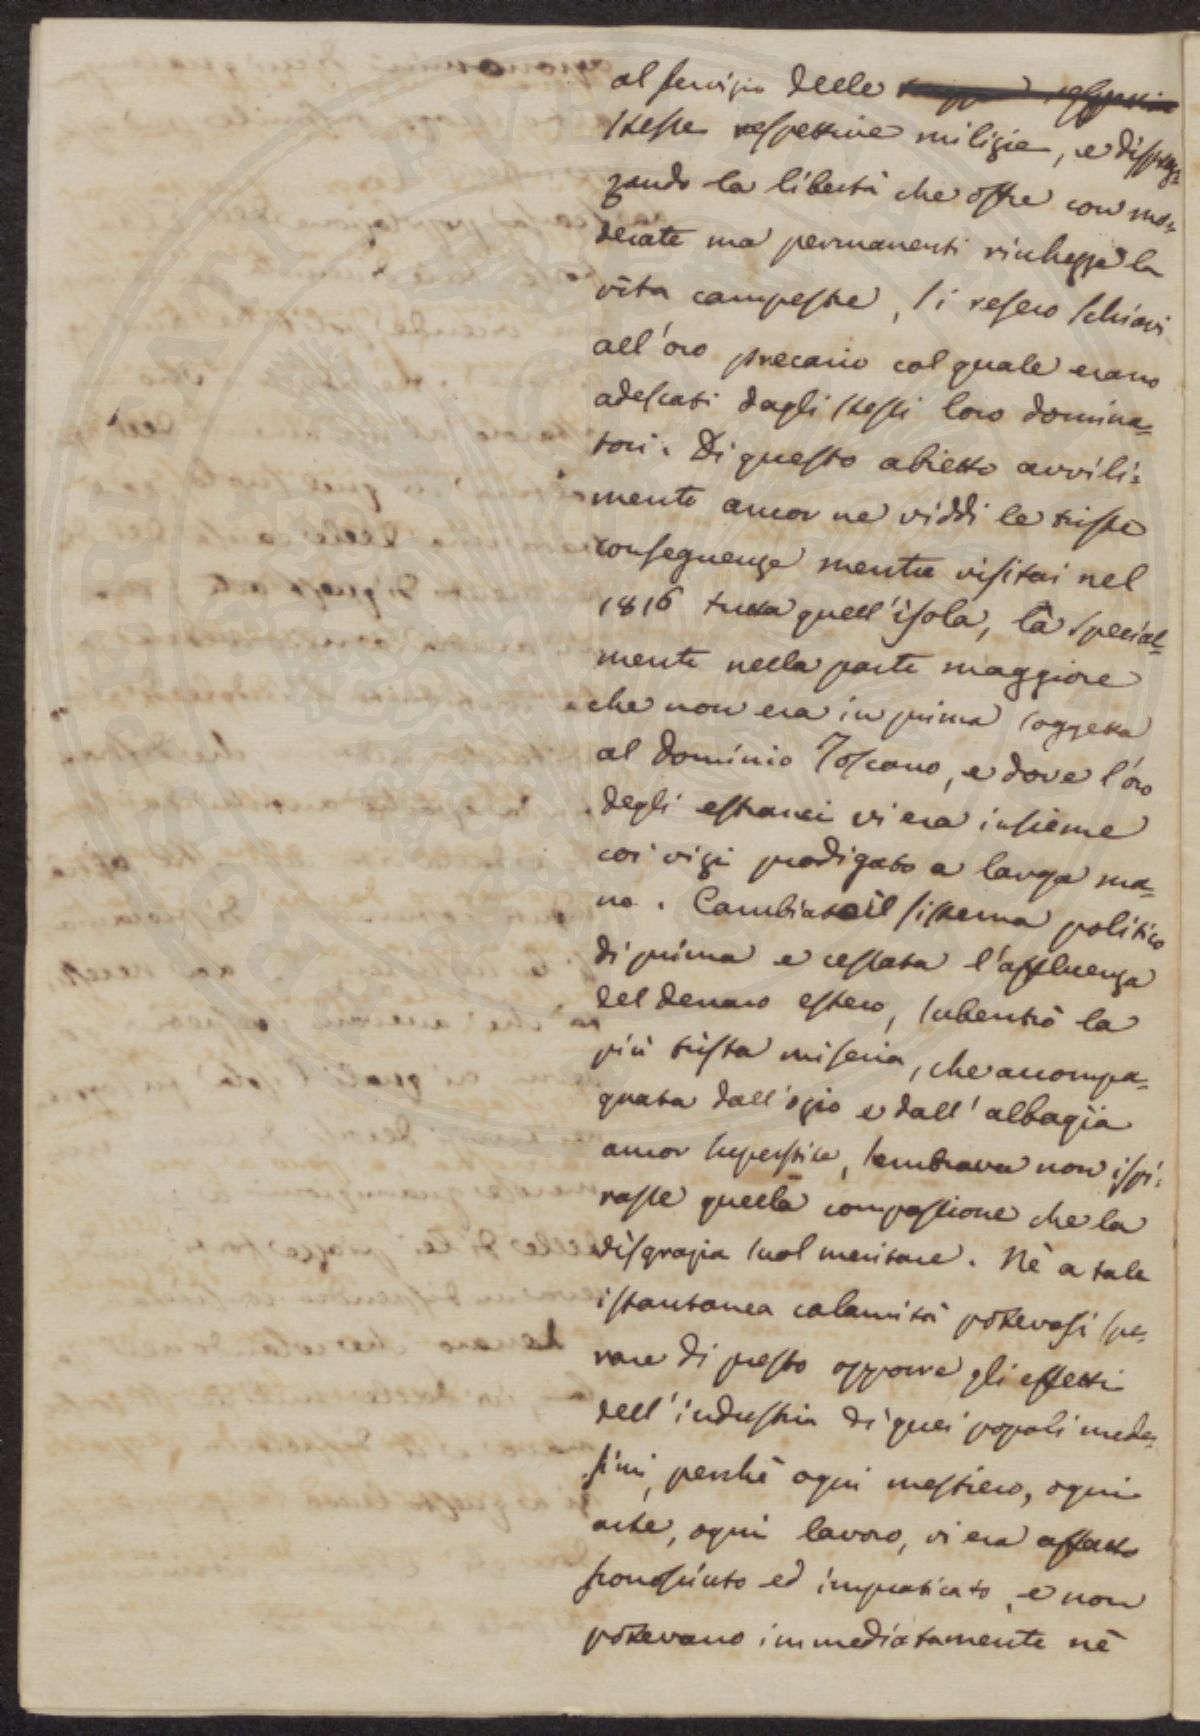 al servizio delle
stesse respettive milizie, e disprez-
zando la libertà che offre con mo-
derate ma permanenti ricchezze la
vita campestre, si resero schiavi
all'oro precario col quale erano
adescati dagli stessi loro domina-
tori. Di questo abietto avvili-
mento ancor ne viddi le triste
conseguenze mentre visitai nel
1816 tutta quell'isola, là special-
mente nella parte maggiore
che non era in prima soggetta
al dominio Toscano, e dove l'oro
degli estranei vi era insieme
coi vizi prodigato a larga ma-
no. Cambiato il sistema politico
di prima e cessata l'affluenza
del denaro estero, subentrò la
più trista miseria, che accompa-
gnata dall'ozio e dall'albagìa
ancor superstite, sembrava non ispi-
rasse quella compassione che la
disgrazia suol meritare. Nè a tale
istantanea calamità potevasi spe-
rare di presto opporre gli effetti
dell'industria di quei popoli mede-
simi, perchè ogni mestiero, ogni
arte, ogni lavoro, vi era affatto
sconosciuto ed impraticato, e non
potevano immediatamente nè